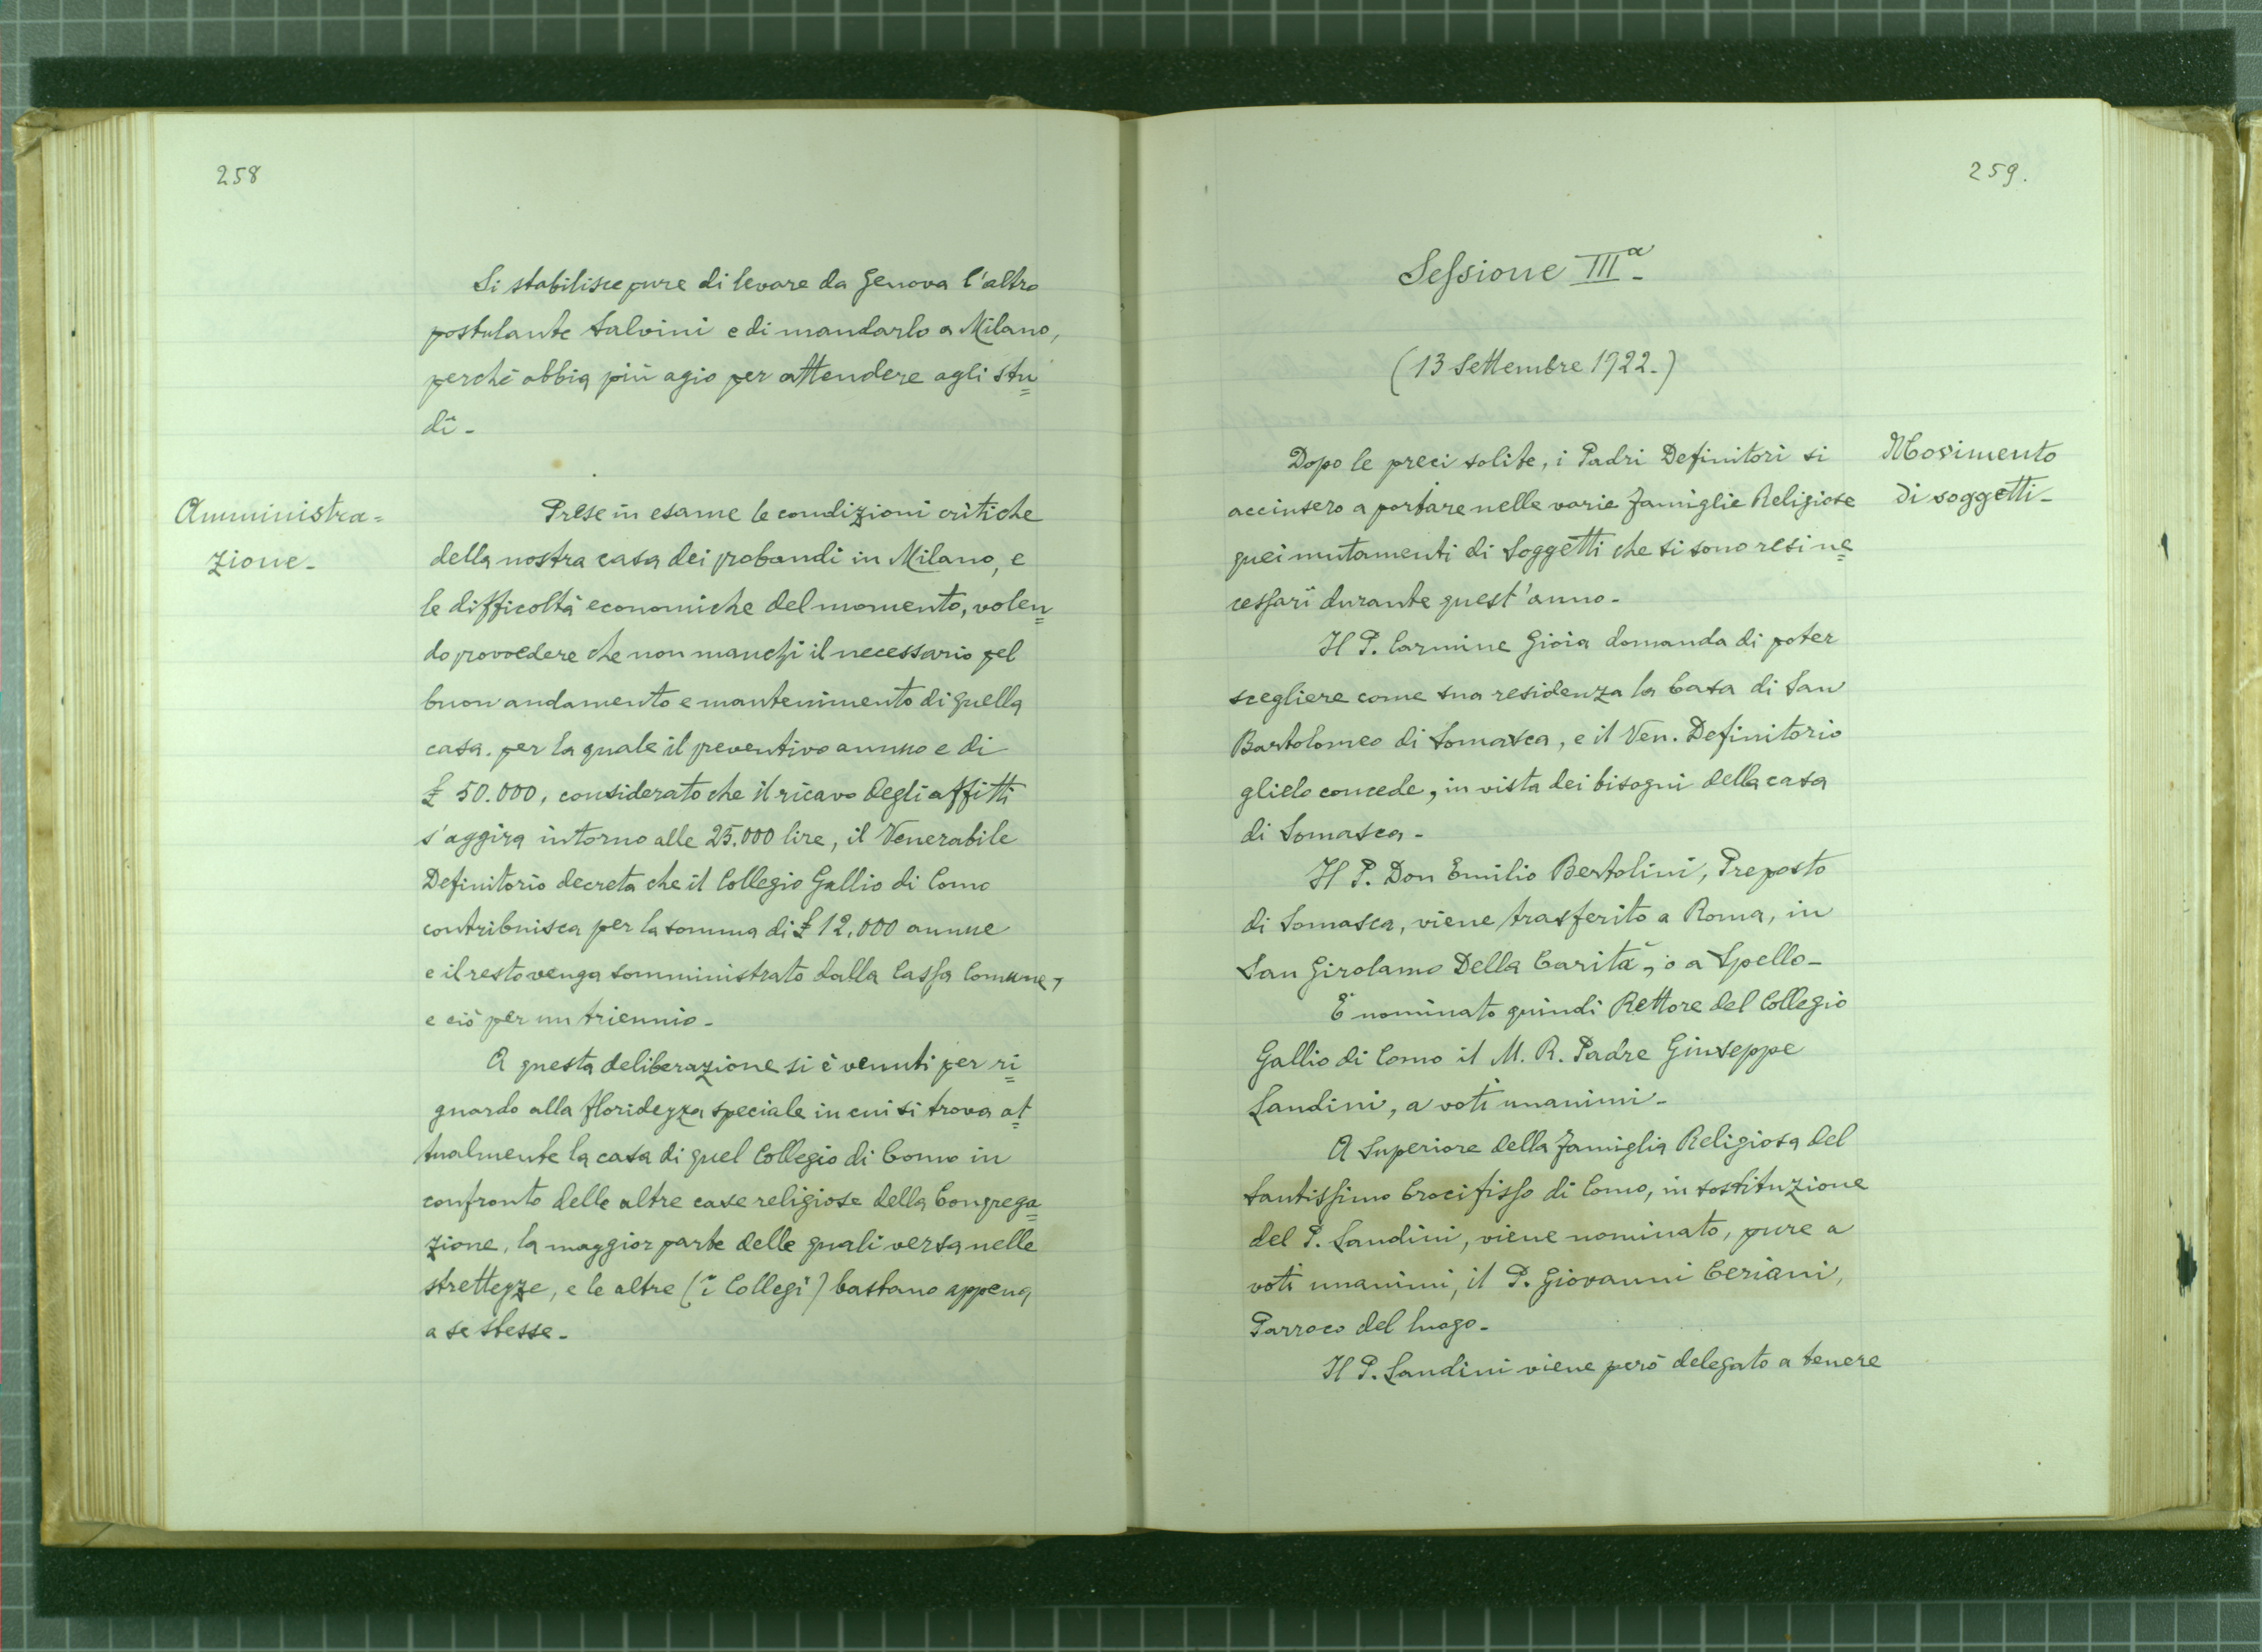 258
Si stabilisce pure di levare da Genova l'altro
postulante Salvini e di mandarlo a Milano,
perchè abbia più agio per attendere agli stu=
dî -
Amministra=
zione -
Prese in esame le condizioni critiche
della nostra casa dei probandi in Milano, e
le difficoltà economiche del momento, volen=
do provvedere che non manchi il necessario pel
buon andamento e mantenimento di quella
casa. per la quale il preventivo annuo e di
£ 50.000, considerato che il ricavo degli affitti
s'aggira intorno alle 25.000 lire, il Venerabile
Definitorio decreta che il Collegio Gallio di Como
contribuisca per la somma di £ 12.000 annue
e il resto venga somministrato dalla Cassa Comune,
e ciò per un triennio -
A questa deliberazione si è venuti per ri=
guardo alla floridezza speciale in cui si trova at=
tualmente la casa di quel Collegio di Como in
confronto delle altre case religiose della Congrega=
zione, la maggior parte delle quali versa nelle
strettezze, e le altre (i Collegi) bastano appena
a se stesse -
259.
Sessione IIIª -
(13 Settembre 1922.)
Movimento
di soggetti -
Dopo le preci solite, i Padri Definitori si
accinsero a portare nelle varie famiglie Religiose
quei mutamenti di Soggetti che si sono resi ne=
cessarî durante quest'anno -
Il P. Carmine Gioia domanda di poter
scegliere come sua residenza la Casa di San
Bartolomeo di Somasca, e il Ven. Definitorio
glielo concede, in vista dei bisogni della casa
di Somasca -
Il P. Don Emilio Bertolini, Preposto
di Somasca, viene trasferito a Roma, in
San Girolamo Della Carità, o a Spello -
È nominato quindi Rettore del Collegio
Gallio di Como il M. R. Padre Giuseppe
Landini, a voti unanimi -
A Superiore della famiglia Religiosa del
Santissimo Crocifisso di Como, in sostituzione
del P. Landini, viene nominato, pure a
voti unanimi, il P. Giovanni Ceriani,
Parroco del luogo -
Il P. Landini viene però delegato a tenere